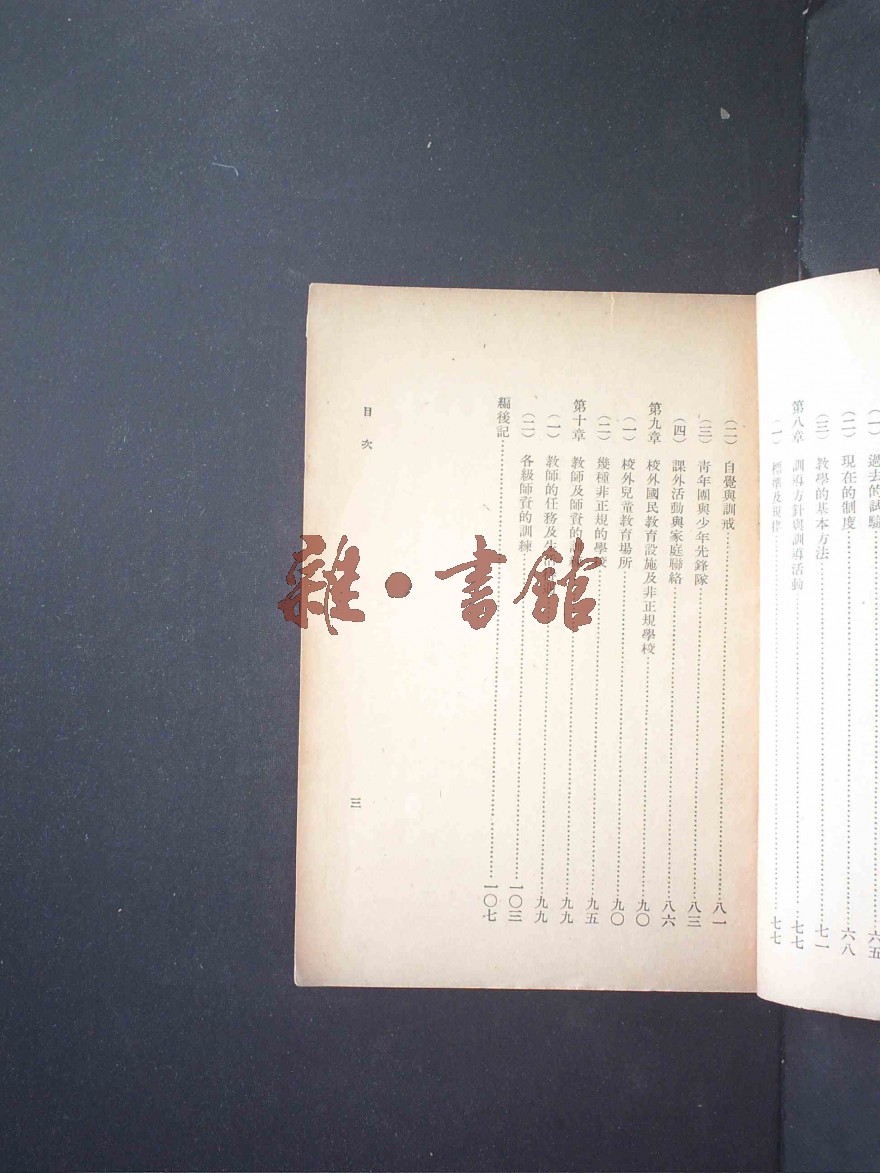 (一) 過去的試驗……六五
(二) 現在的制度……六八
(三) 敎學的基本方法……七一
第八章 訓導方針與訓導活動……七七
(一) 標準及規律……七七
(二) 自覺與訓戒……八一
(三) 靑年團與少年先鋒隊……八三
(四) 課外活動與家庭聯絡……八六
第九章 校外國民敎育設施及非正規學校……九〇
(一) 校外兒童敎育場所……九〇
(二) 幾種非正規的學校……九五
第十章 敎師及師資的……九九
(一) 敎師的任務及……九九
(二) 各級師資的訓練……一〇三
編後記……一〇七
目次
三
雜·書館